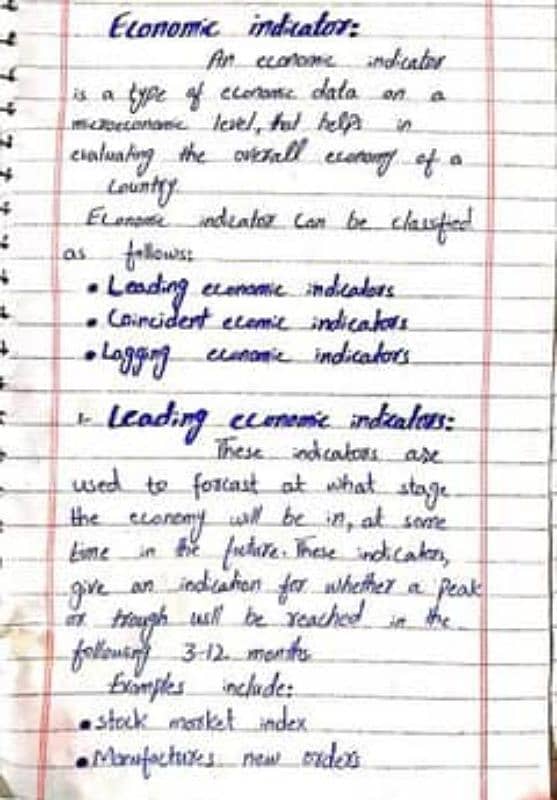 Economic indicator:
An economic indicator
is a type of economic data on a
microeconomic level, that helps in
evaluating the overall economy of a
country
Economic indicator can be classified
as follows:
• Leading economic indicators
• Coincident ecomic indicators
• Lagging economic indicators
1- Leading economic indicators:
These indicators are
used to forcast at what stage
the economy will be in, at some
time in the future. These indicators,
give an indication for whether a peak
or trough will be reached in the
following 3-12 months
Examples include:
• stock market index
• Manufactures new orders